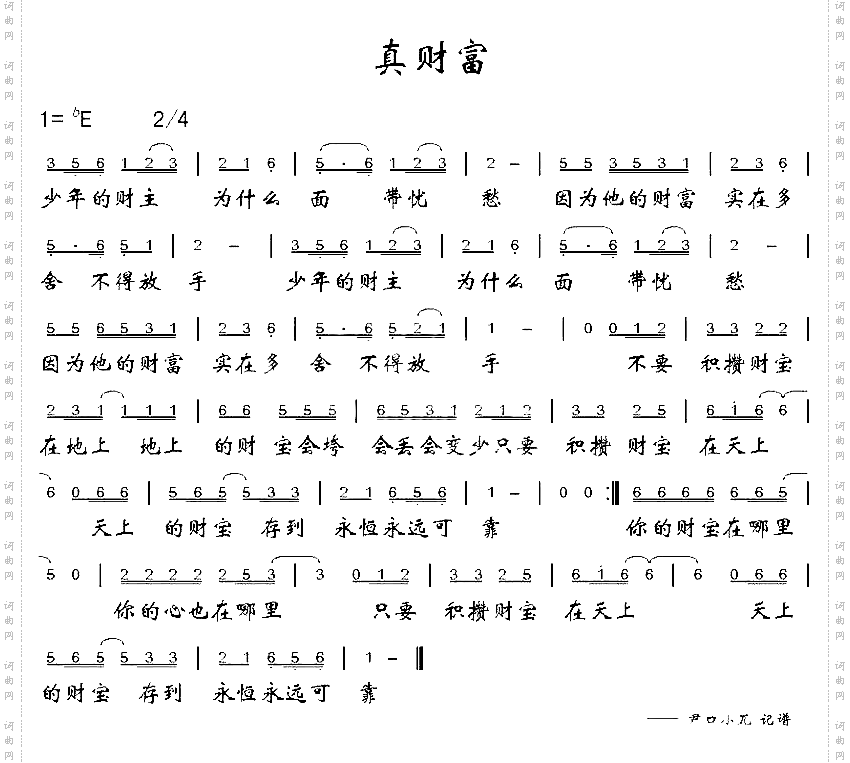 真财富
1= ᵇE 2/4
3 5 6 1 2 3 | 2 1 6 | 5 · 6 1 2 3 | 2 – | 5 5 3 5 3 1 | 2 3 6 |
少年的财主 为什么 面 带忧 愁 因为他的财富 实在多
5 · 6 5 1 | 2 – | 3 5 6 1 2 3 | 2 1 6 | 5 · 6 1 2 3 | 2 – |
舍 不得放 手 少年的财主 为什么 面 带忧 愁
5 5 6 5 3 1 | 2 3 6 | 5 · 6 5 2 1 | 1 – | 0 0 1 2 | 3 3 2 2 |
因为他的财富 实在多 舍 不得放 手 不要 积攒财宝
2 3 1 1 1 1 | 6 6 5 5 5 | 6 5 3 1 2 1 2 | 3 3 2 5 | 6 1 6 6 |
在地上 地上 的财 宝会垮 会丢会变少只要 积攒 财宝 在天上
6 0 6 6 | 5 6 5 5 3 3 | 2 1 6 5 6 | 1 – | 0 0 :‖ 6 6 6 6 6 6 5 |
天上 的财宝 存到 永恒永远可 靠 你的财宝在哪里
5 0 | 2 2 2 2 2 5 3 | 3 0 1 2 | 3 3 2 5 | 6 1 6 6 | 6 0 6 6 |
你的心也在哪里 只要 积攒财宝 在天上 天上
5 6 5 5 3 3 | 2 1 6 5 6 | 1 – ‖
的财宝 存到 永恒永远可 靠
—— 尹口小兀 记谱
词曲网